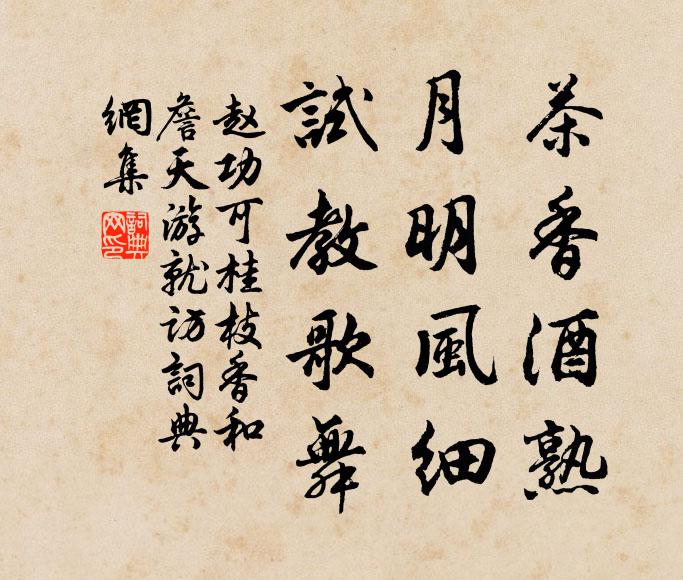 茶香酒熟
月明風细
試教歌舞
赵功可桂枝香和
詹天游就访詞典
網集
詞典网印